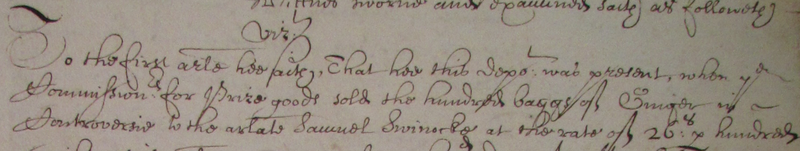 witness sworne and examined saith as followeth
viz:t
To the first arle hee saith, That hee this depo:t was present, when ye
Commission:rs for Prize goods sold the hundred baggs of Ginger in
Controversie to the arlate Samuel Swinocke at the rate of 26:s p hundred